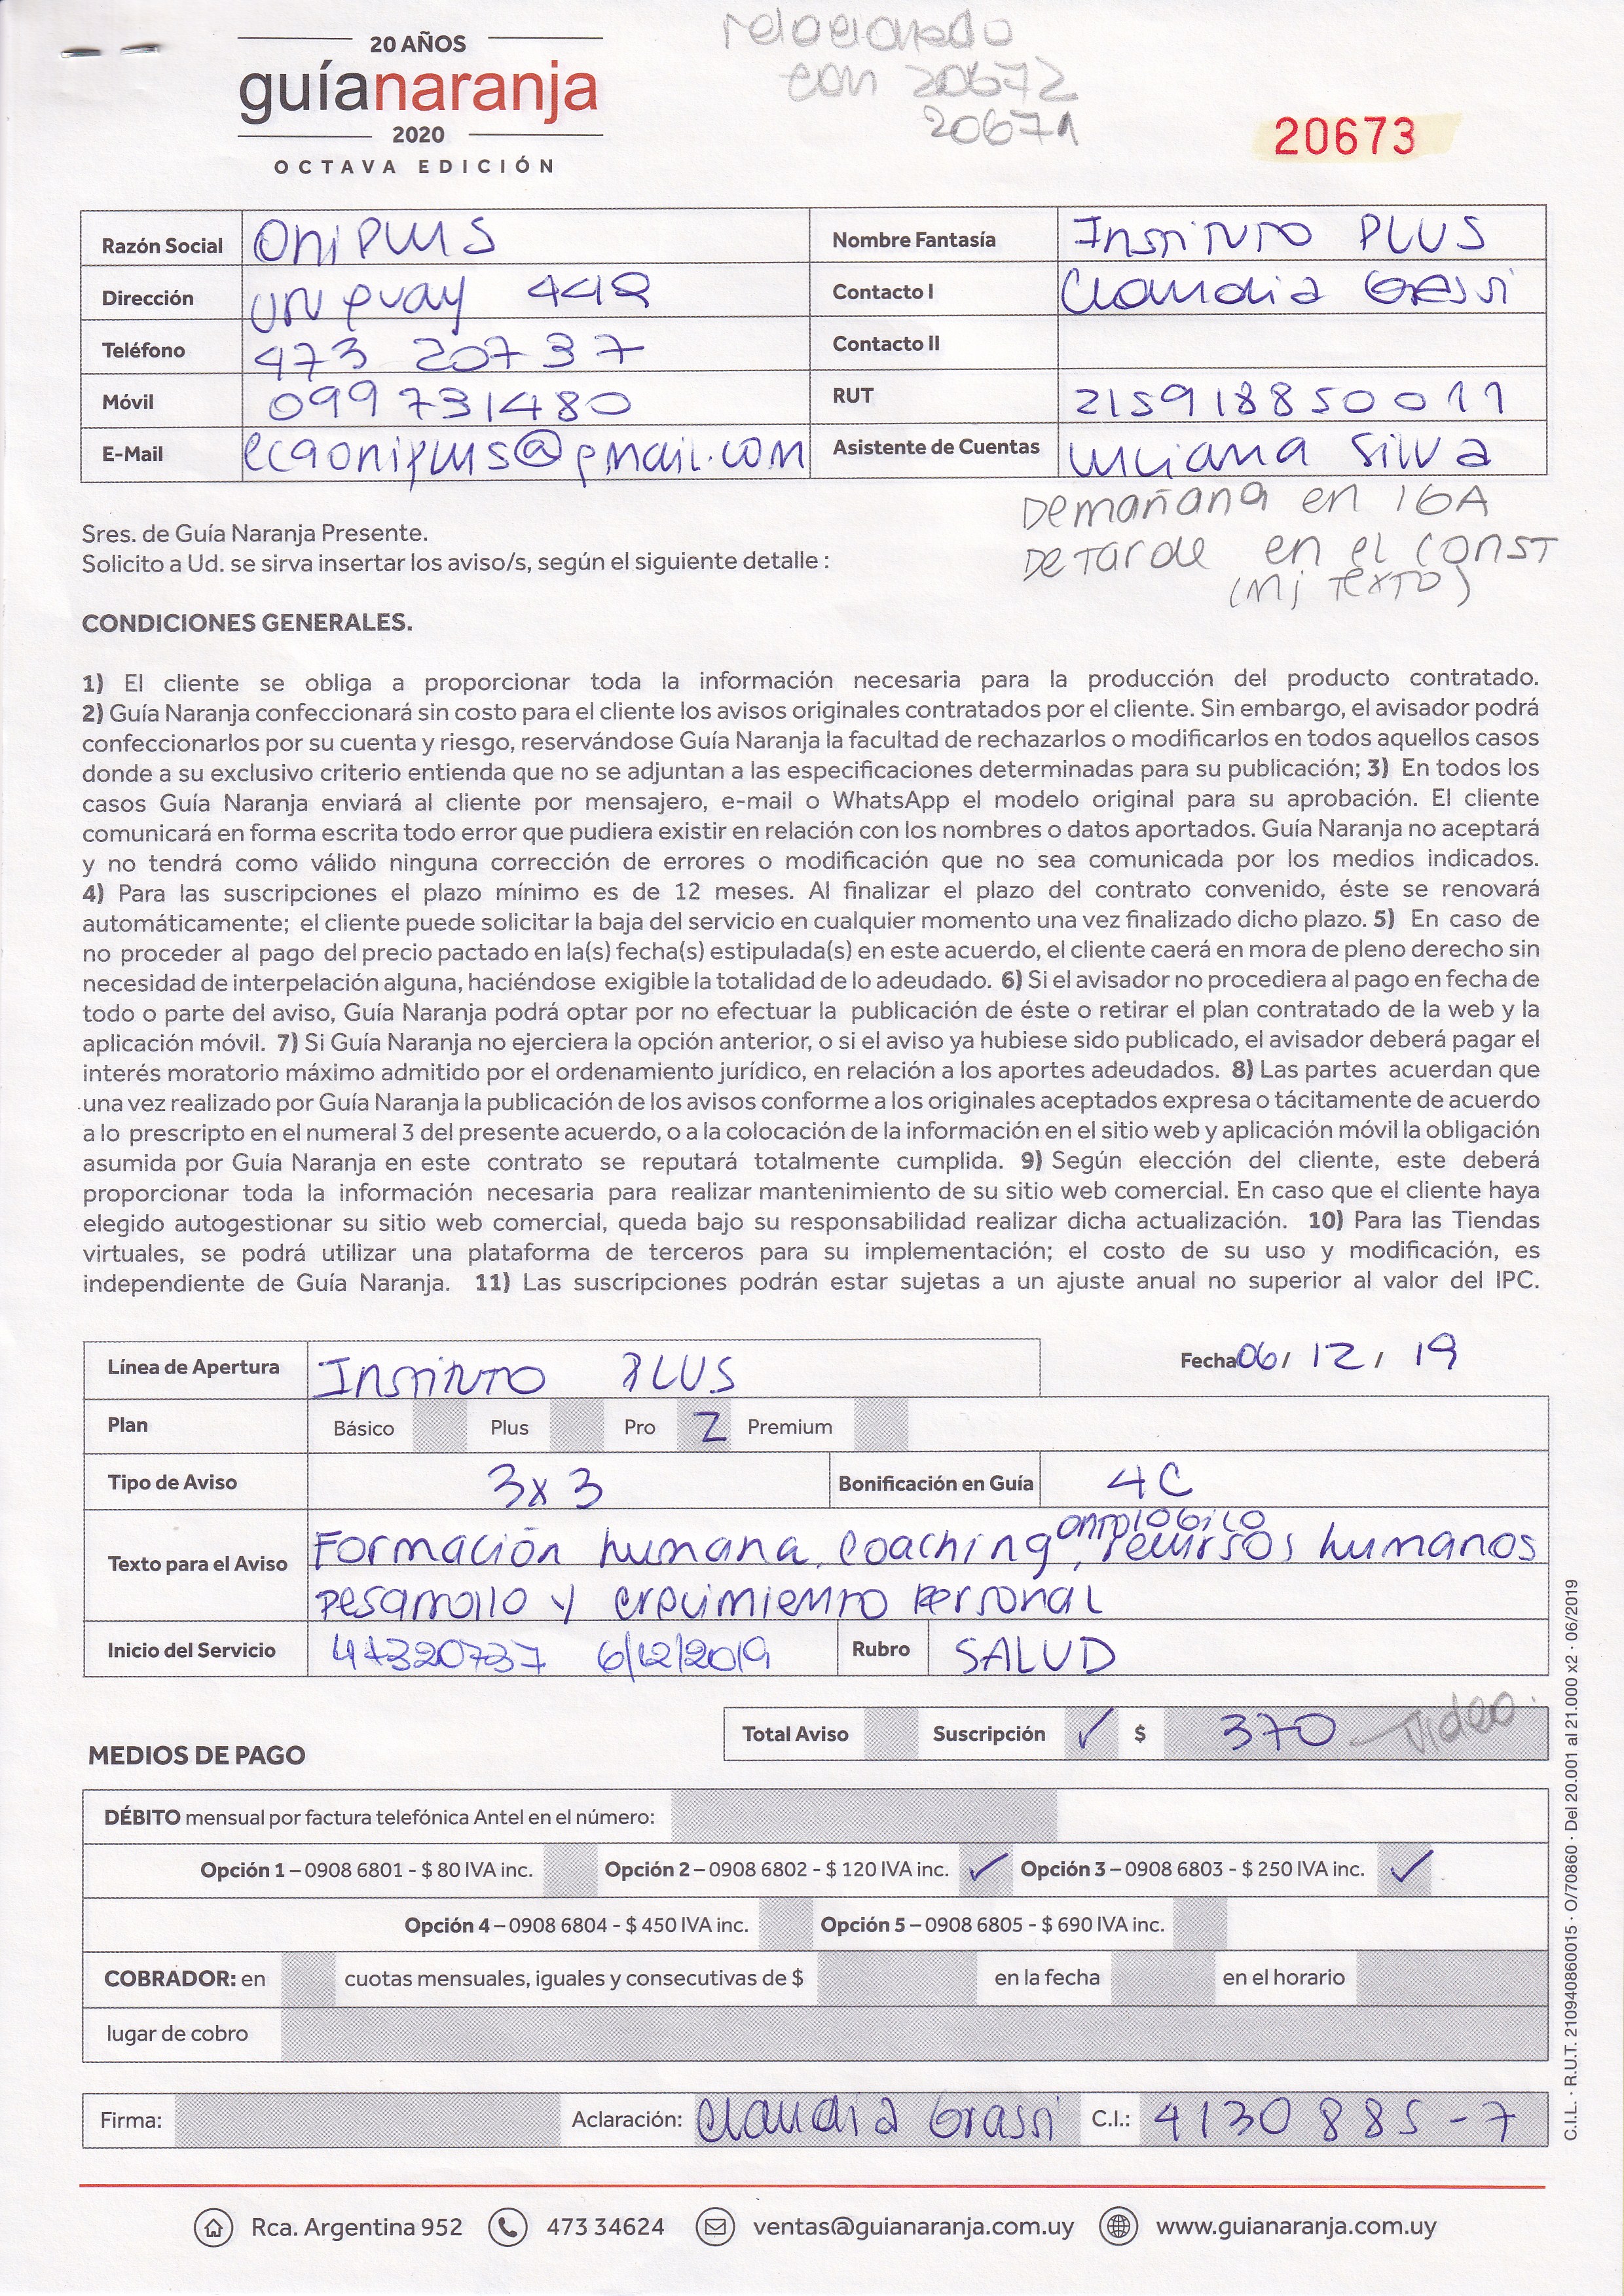 relacionado
con 20672
20671
20 AÑOS
guíanaranja
2020
OCTAVA EDICIÓN
20673
Razón Social OniPlus Nombre Fantasía Instituto PLUS
Dirección Uruguay 442 Contacto I Claudia Grassi
Teléfono 473 20737 Contacto II
Móvil 099 731480 RUT 215918850011
E-Mail ecaoniplus@gmail.com Asistente de Cuentas Luciana Silva
Demañana en 16A
De Tarde en el Const
(mi texto)
Sres. de Guía Naranja Presente.
Solicito a Ud. se sirva insertar los aviso/s, según el siguiente detalle :
CONDICIONES GENERALES.
1) El cliente se obliga a proporcionar toda la información necesaria para la producción del producto contratado.
2) Guía Naranja confeccionará sin costo para el cliente los avisos originales contratados por el cliente. Sin embargo, el avisador podrá
confeccionarlos por su cuenta y riesgo, reservándose Guía Naranja la facultad de rechazarlos o modificarlos en todos aquellos casos
donde a su exclusivo criterio entienda que no se adjuntan a las especificaciones determinadas para su publicación; 3) En todos los
casos Guía Naranja enviará al cliente por mensajero, e-mail o WhatsApp el modelo original para su aprobación. El cliente
comunicará en forma escrita todo error que pudiera existir en relación con los nombres o datos aportados. Guía Naranja no aceptará
y no tendrá como válido ninguna corrección de errores o modificación que no sea comunicada por los medios indicados.
4) Para las suscripciones el plazo mínimo es de 12 meses. Al finalizar el plazo del contrato convenido, éste se renovará
automáticamente; el cliente puede solicitar la baja del servicio en cualquier momento una vez finalizado dicho plazo. 5) En caso de
no proceder al pago del precio pactado en la(s) fecha(s) estipulada(s) en este acuerdo, el cliente caerá en mora de pleno derecho sin
necesidad de interpelación alguna, haciéndose exigible la totalidad de lo adeudado. 6) Si el avisador no procediera al pago en fecha de
todo o parte del aviso, Guía Naranja podrá optar por no efectuar la publicación de éste o retirar el plan contratado de la web y la
aplicación móvil. 7) Si Guía Naranja no ejerciera la opción anterior, o si el aviso ya hubiese sido publicado, el avisador deberá pagar el
interés moratorio máximo admitido por el ordenamiento jurídico, en relación a los aportes adeudados. 8) Las partes acuerdan que
una vez realizado por Guía Naranja la publicación de los avisos conforme a los originales aceptados expresa o tácitamente de acuerdo
a lo prescripto en el numeral 3 del presente acuerdo, o a la colocación de la información en el sitio web y aplicación móvil la obligación
asumida por Guía Naranja en este contrato se reputará totalmente cumplida. 9) Según elección del cliente, este deberá
proporcionar toda la información necesaria para realizar mantenimiento de su sitio web comercial. En caso que el cliente haya
elegido autogestionar su sitio web comercial, queda bajo su responsabilidad realizar dicha actualización. 10) Para las Tiendas
virtuales, se podrá utilizar una plataforma de terceros para su implementación; el costo de su uso y modificación, es
independiente de Guía Naranja. 11) Las suscripciones podrán estar sujetas a un ajuste anual no superior al valor del IPC.
Línea de Apertura Instituto PLUS Fecha 06/ 12 / 19
Plan Básico Plus Pro Z Premium
Tipo de Aviso 3x3 Bonificación en Guía 4C
ontológico
Texto para el Aviso Formación humana, coaching, recursos humanos
Desarrollo y crecimiento personal
Inicio del Servicio 47320737 6/12/2019 Rubro SALUD
Total Aviso Suscripción ✓ $ 370 video
MEDIOS DE PAGO
DÉBITO mensual por factura telefónica Antel en el número:
Opción 1 – 0908 6801 - $ 80 IVA inc. Opción 2 – 0908 6802 - $ 120 IVA inc. ✓ Opción 3 – 0908 6803 - $ 250 IVA inc. ✓
Opción 4 – 0908 6804 - $ 450 IVA inc. Opción 5 – 0908 6805 - $ 690 IVA inc.
COBRADOR: en cuotas mensuales, iguales y consecutivas de $ en la fecha en el horario
lugar de cobro
Firma: Aclaración: Claudia Grassi C.I.: 4130885-7
Rca. Argentina 952 473 34624 ventas@guianaranja.com.uy www.guianaranja.com.uy
C.I.L. · R.U.T. 210940860015 · O/70860 · Del 20.001 al 21.000 x2 · 06/2019